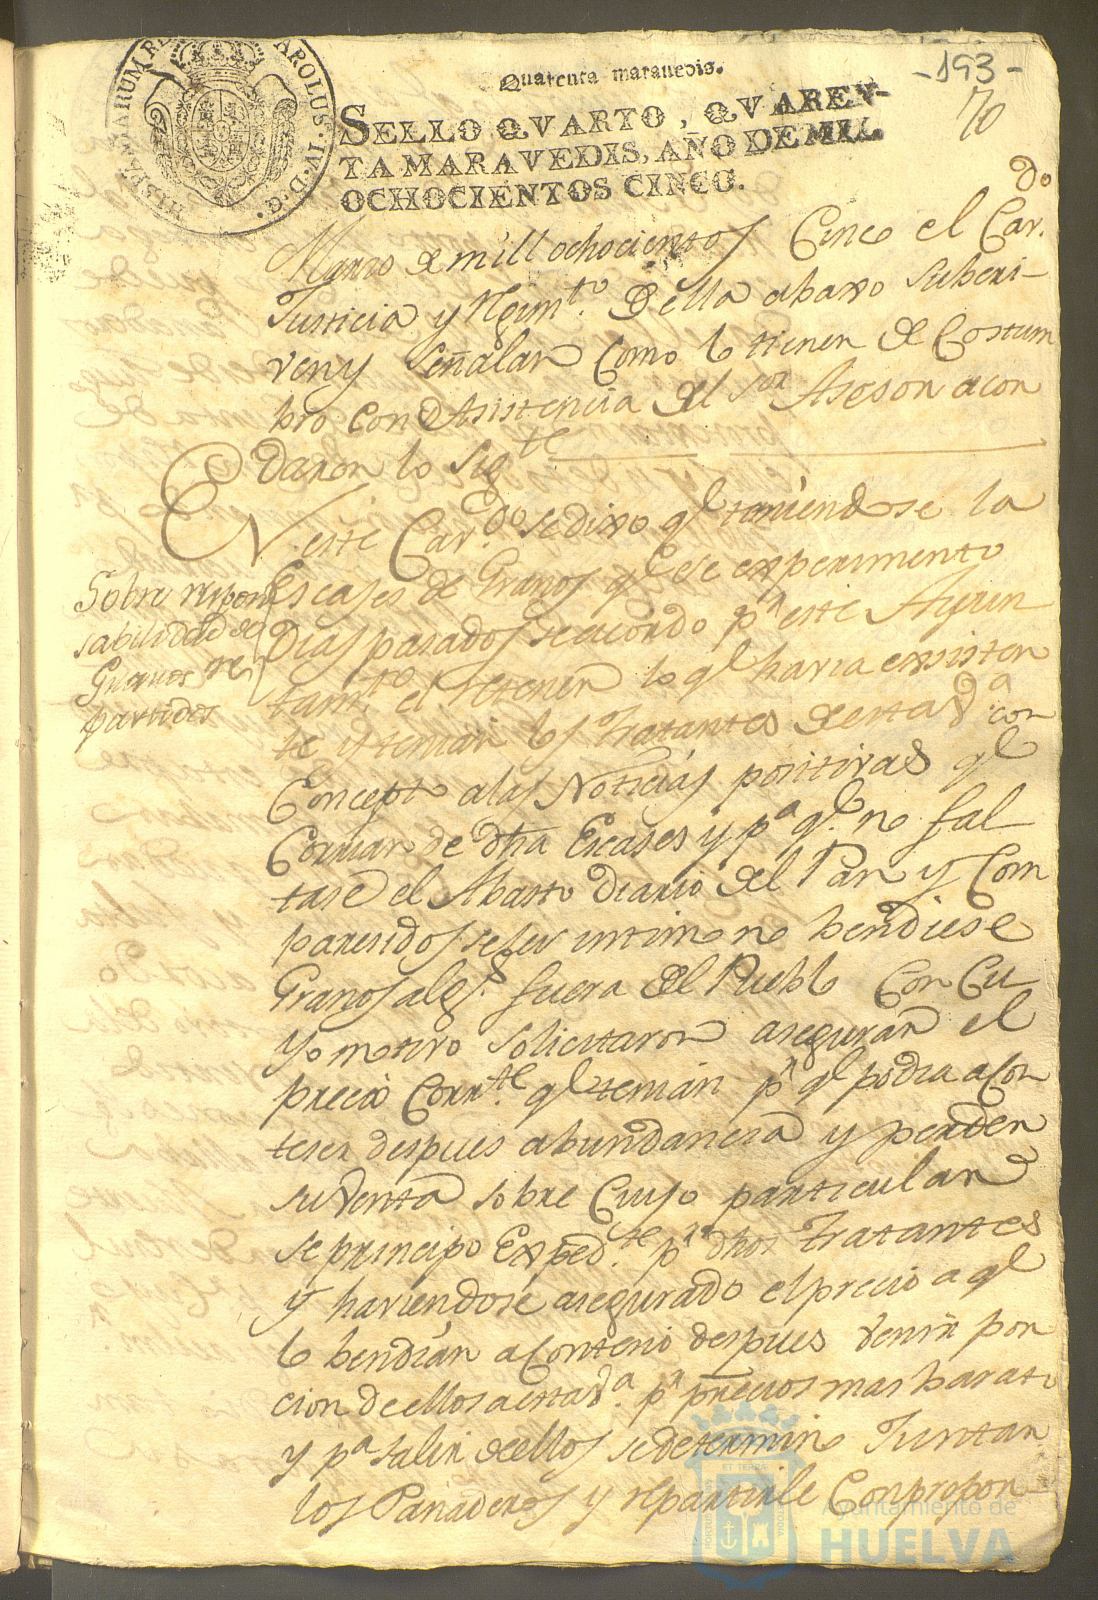 -193-
70
HISPANIARUM REX CAROLUS·IV·D·G·
Quarenta maravedis.
SELLO QVARTO, QVAREN-
TA MARAVEDIS, AÑO DE MIL
OCHOCIENTOS CINCO.
Marzo de mill ochocientos Cinco el Cav.do
Justicia y Rexim.to Della abaxo subcri-
ven y señalan como lo tienen de Costum
bre con Asistencia del S.or Asesor acor
daron lo sig.te
En este Cav.do se dixo q.e teniendose la
Escases de Granos q.e se experimento
Dias pasados se acordo p.r este Ayun
tam.to el retener lo q.e havia existen
te y tenian los Tratantes de esta V.a con
Concepto a las Noticias positivas q.e
Corrian de dha Escases y p.a q.e no fal
tase el Abasto diario del Pan y Com
paresidos se les intimo no bendiese
Granos alg.s fuera del Pueblo Con Cu
yo motivo solicitaron asegurar el
precio Corr.te q.e tenian p.r q.e podia acon
teser despues abundancia y perder
su Venta sobre Cuyo particular
se principio Exped.te p.r dhos Tratantes
y haviendose asegurado el precio a q.e
lo bendian acontecio despues venir por
cion de ellos a esta V.a p.r precios mas barato
y p.a salir de ellos se determino Juntar
los Panaderos y repartirle Con propor-
Sobre respon
sabilidad de
Granos re
partidos
Ayuntamiento de
HUELVA